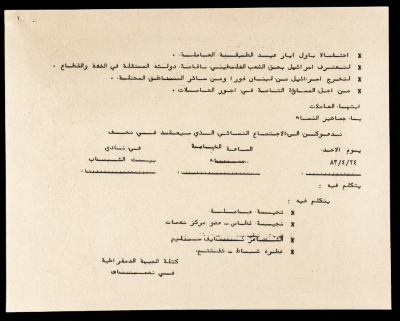 x احتفالا باول ايار عيد الطبقة العاملة.
x لتعترف اسرائيل بحق الشعب الفلسطيني باقامة دولته المستقلة في الضفة والقطاع.
x لتخرج اسرائيل من لبنان فورا ومن سائر المناطق المحتلة.
x من اجل المساواة التامة في اجور العاملات.
ايتها العاملات
يا جماهير النساء
ندعوكن الى الاجتماع النسائي الذي سيعقد في نحف
يوم الاحد الساعة الخامسة في نادي
٨٣/٤/٢٤ مساء بيت الشباب
يتكلم فيه :
يتكلم فيه :
x تحية عاملة
x نجيبة غطاس - عضو مركز نعمات
x الشاعر نايف سليم
x تفتتح
كتلة الجبهة الدمقراطية
في نعمات